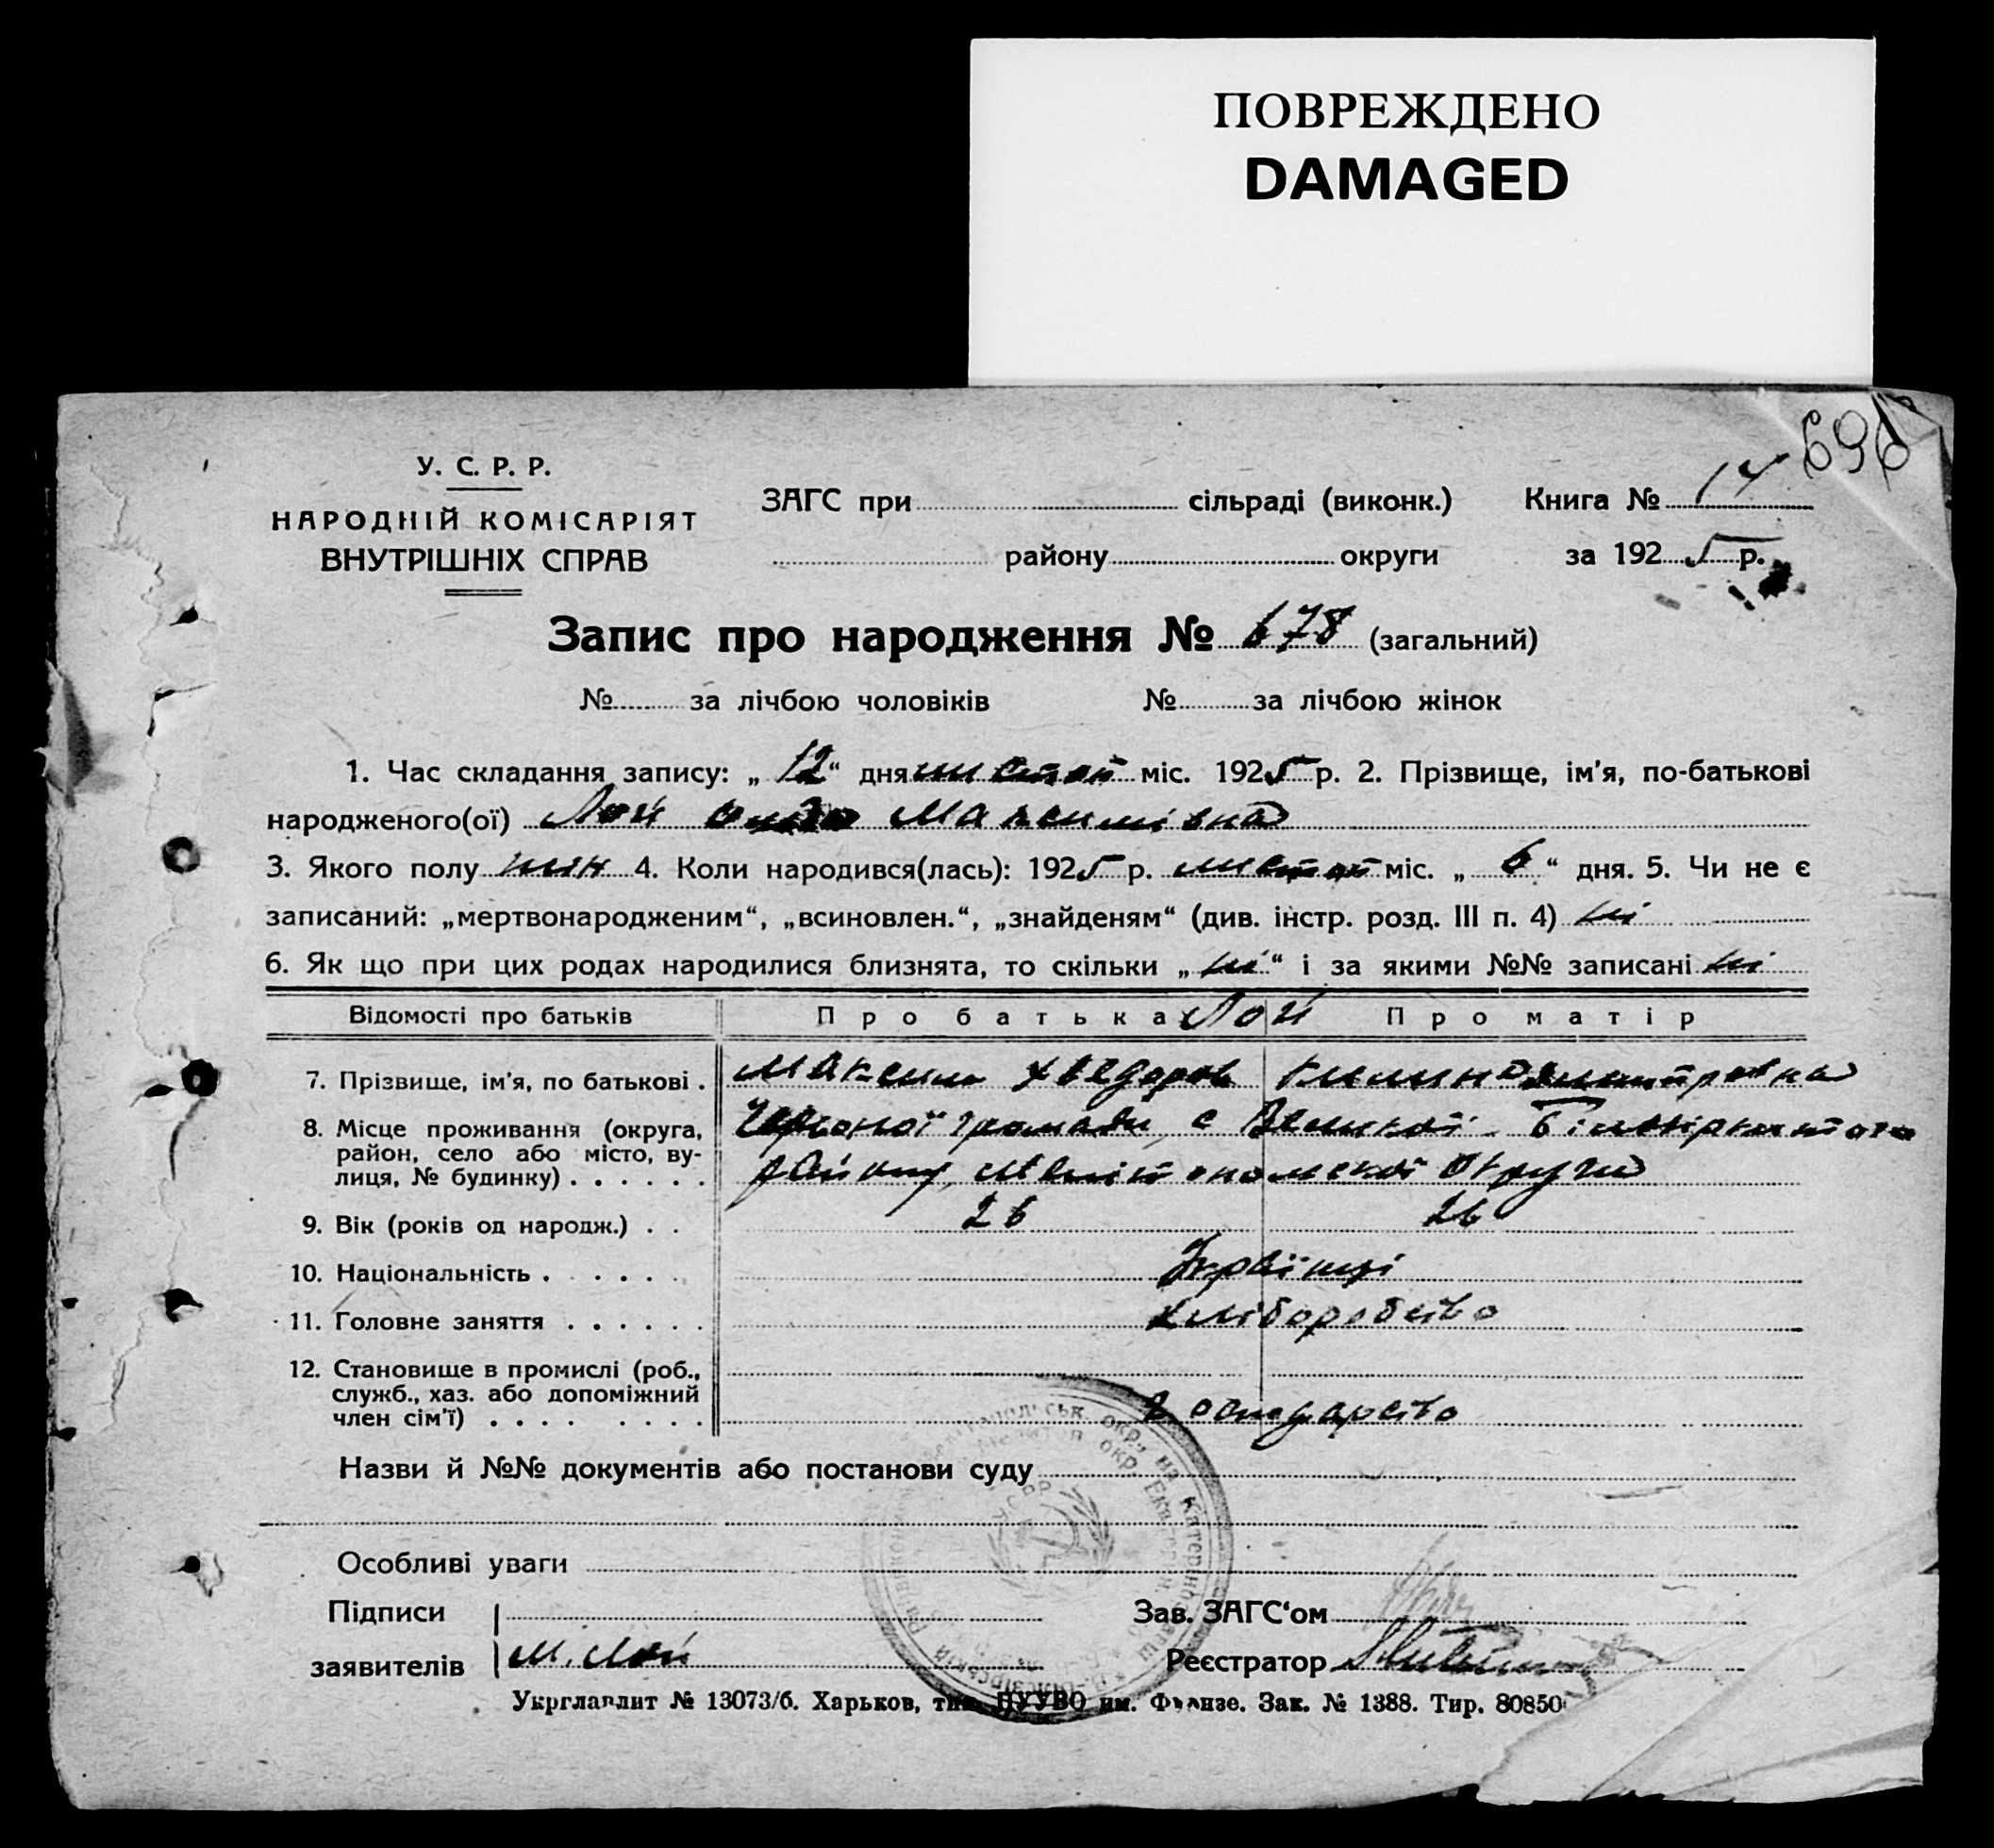 ПОВРЕЖДЕНО
DAMAGED
696
У. С. Р. Р.
НАРОДНІЙ КОМІСАРІЯТ
ВНУТРІШНІХ СПРАВ
ЗАГС при сільраді (виконк.)
району округи
Книга № 14
за 1925 р.
Запис про народження № 678 (загальний)
№ за лічбою чоловіків № за лічбою жінок
1. Час складання запису: „ 12 “ дня листоп міс. 1925 р. 2. Прізвище, ім'я, по-батькові
народженого(ої) Лой Максимівна
3. Якого полу жін 4. Коли народився(лась): 1925 р. листоп міс. „ 6 “ дня. 5. Чи не є
записаний: „мертвонародженим“, „всиновлен.“, „знайденям“ (див. інстр. розд. III п. 4) ні
6. Як що при цих родах народилися близнята, то скільки „ ні “ і за якими №№ записані ні
Відомості про батьків Про батька Лой Про матір
7. Прізвище, ім'я, по батькові . Максим Хведоров Килина Дмитровна
8. Місце проживання (округа, район, село або місто, вулиця, № будинку) . . . . . . Червоної громади, с Великої Білозірки того
району, Мелітопольскої округи
9. Вік (років од народж.) . . 26 26
10. Національність . . . . . . Українці
11. Головне заняття . . . . . . Хліборобство
12. Становище в промислі (роб., служб., хаз. або допоміжний член сім'ї) . . . . . . . . господарство
Назви й №№ документів або постанови суду
Особливі уваги
Підписи
заявителів М. Лой
Зав. ЗАГС‘ом
Реєстратор
Укрглавлит № 13073/б. Харьков, тип. ПУУВО им. Фрунзе. Зак. № 1388. Тир. 80850